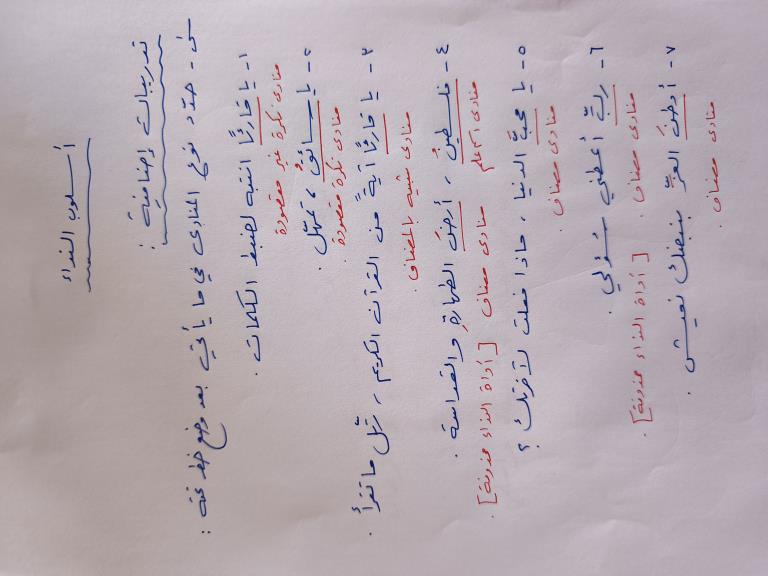 أسلوب النداء
تدريبات إضافية :
س - حدّد نوع المنادى في ما يأتي بعد وضع خط تحته :
١ - يا قارئًا انتبه لضبط الكلمات .
منادى نكرة غير مقصودة
٢ - يا سائقُ ، تمهّل .
منادى نكرة مقصودة .
٣ - يا قارئًا آيةً من القرآن الكريم ، رتّل ما تقرأ .
منادى شبيه بالمضاف .
٤ - فلسطينُ ، أرضَ الطهارةِ والقداسة .
منادى اسم علم منادى مضاف [ أداة النداء محذوفة ] .
٥ - يا محبَّ الدنيا ، ماذا فعلت لآخرتك ؟
منادى مضاف .
٦ - ربِّ أعطني سُؤلي .
منادى مضاف . [ أداة النداء محذوفة ] .
٧ - أوطنَ العزِّ بنبضك نعيش .
منادى مضاف .